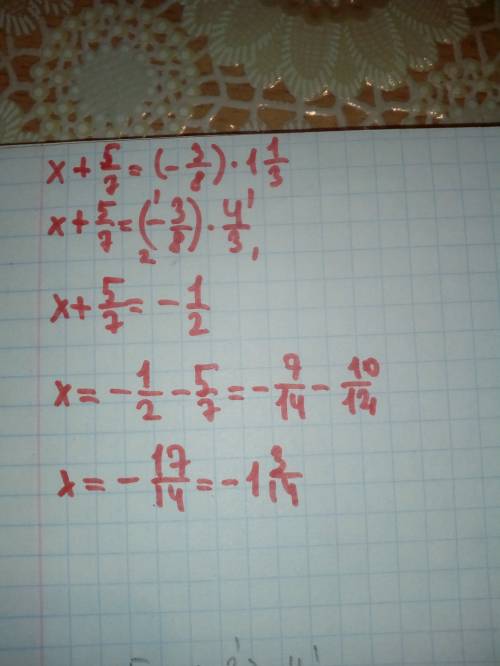 x + 5/7 = (-3/8) · 1 1/3
x + 5/7 = (-3/8) · 4/3
x + 5/7 = - 1/2
x = - 1/2 - 5/7 = - 7/14 - 10/14
x = - 17/14 = -1 3/14